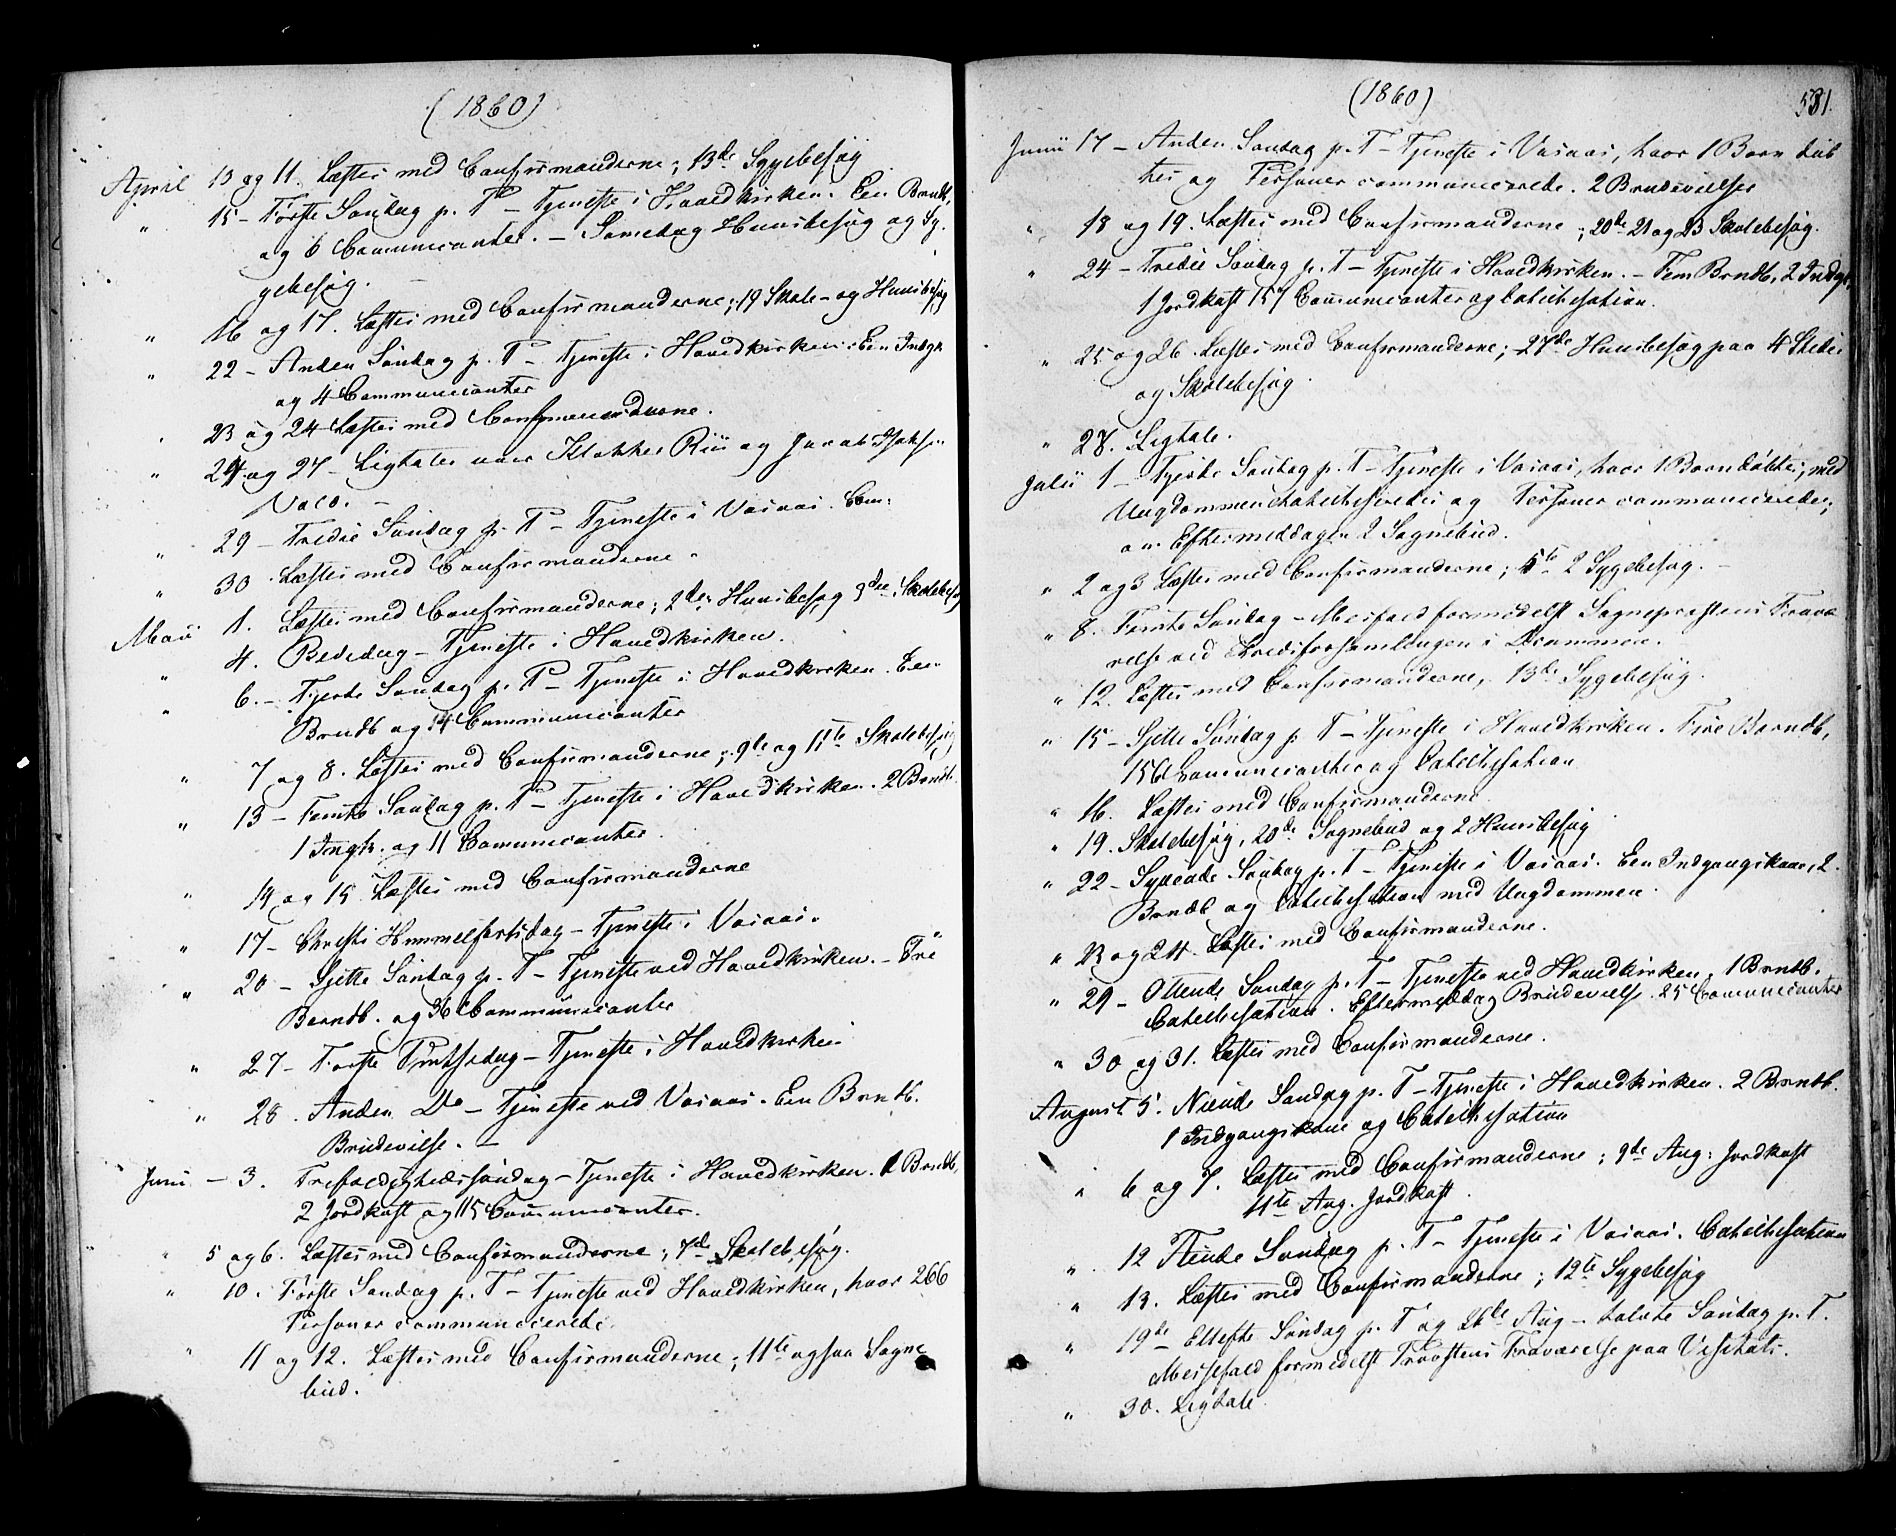 (1860)
April 10 og 11. Læstes med Confirmanderne; 13de Sygebesøg
" 15 - Første Søndag p. P - Tjeneste i Hovedkirken. Een Barndb,
og 6 Communicanter. - Samedag Huusbesøg og Sy-
gebesøg. -
" 16 og 17. Læstes med Confirmanderne; 19 Skole- og Huusbesøg
" 22 - Anden Søndag p. P - Tjeneste i Hovedkirken. Een Indgk
og 4 Communicanter
" 23 og 24 Læstes med Confirmanderne.
" 24 og 27 - Ligtaler over Klokker Riis og Jacob
" 29 - Tredie Søndag p. P - Tjeneste i Vasaas. Com:
" 30 Læstes med Confirmanderne.
Maii 1. Læstes med Confirmanderne; 2den Huusbesøg 3die Skolebesøg
" 4. Bededag - Tjeneste i Hovedkirken.
" 6. - Fjerde Søndag p. P - Tjeneste i Hovedkirken. Een
Barndb og 14 Communicanter
" 7 og 8. Læstes med Confirmanderne; 9de og 11te Skolebesøg
" 13 - Femte Søndag p. P - Tjeneste i Hovedkirken. 2 Barndb.
1 Ingk. og 11 Comunicanter.
" 14 og 15 Læstes med Confirmanderne
" 17 - Christi Himmelfartsdag - Tjeneste i Vasaas.
" 20 - Sjette Søndag p. P - Tjeneste ved Hovedkirken. - Tre
Barndb. og 36 Communicanter
" 27 - Første Pintsedag - Tjeneste i Hovedkirken
" 28. Anden Do - Tjeneste ved Vasaas. Een Barndb.
Brudevielse. -
Juni - 3. Trefoldighedssøndag - Tjeneste i Hovedkirken. 1 Barndb,
2 Jordkast og 115 Communicanter.
" 5 og 6. Læstes med Confirmanderne; 7de Skolebesøg.
" 10. Første Søndag p. T - Tjeneste ved Hovedkirken, hvor 266
Personer communicerede.
" 11 og 12. Læstes med Confirmanderne; 11te ogsaa Sogne
bud.
(1860)
531.
Junii 17 - Anden Søndag p. T - Tjeneste i Vasaas, hvor 1 Barn døb
tes og Personer communicerede. 2 Brudevielser
" 18 og 19. Læstes med Confirmanderne; 20de 21 og 23 Skolebesøg.
" 24 - Tredie Søndag p. T - Tjeneste i Hovedkirken. - Fem Barndb, 2 Indgk,
1 Jordkast 157 Communicanter og Catechisation.
" 25 og 26 Læstes med Confirmanderne; 27de Huusbesøg paa 4 Steder
og Skolebesøg.
" 28. Ligtale.
Julii 1 - Fjerde Søndag p. T - Tjeneste i Vasaas, hvor 1 Barn døbtes; med
Ungdommen Catechiseredes og Personer communicerede;
om Eftermiddagen 2 Sognebud.
" 2 og 3 Læstes med Confirmanderne; 5te 2 Sygebesøg. -
" 8. Femte Søndag - Messefald formedelst Sognepræstens Fravæ
relse ved Kredsforsamlingen i Drammen.
" 12. Læstes med Confirmanderne, 13de Sygebesøg.
" 15 - Sjette Søndag p. T - Tjeneste i Hovedkirken. Fire Barndb,
156 Communicanter og Catechisation
" 16. Læstes med Confirmanderne
" 19. Skolebesøg, 20de Sognebud og 2 Huusbesøg
" 22 - Syvende Søndag p. T - Tjeneste i Vasaas. Een Indgangskone, 2
Barndb og Catechisation med Ungdommen.
" 23 og 24. Læstes med Confirmanderne.
" 29 - Ottende Søndag p. T - Tjeneste ved Hovedkirken; 1 Barndb.
Catechisation. Eftermiddag Brudevielse. 25 Comunicanter
" 30 og 31. Læstes med Confirmanderne.
August 5. Niende Søndag p. T - Tjeneste i Hovedkirken. 2 Barndb.
1 Indgangskone og Catechisation
" 6 og 7. Læstes med Confirmanderne; 9de Aug: Jordkast
11te Aug. Jordkast.
" 12 Tiende Søndag p. T - Tjeneste i Vasaas. Catechisation
" 13. Læstes med Confirmanderne; 12te Sygebesøg
" 19de Ellefte Søndag p. T og 26de Aug - tolvte Søndag p. T.
Messefald formedelst Provstens Fraværelse paa Visitats.
" 30. Ligtale